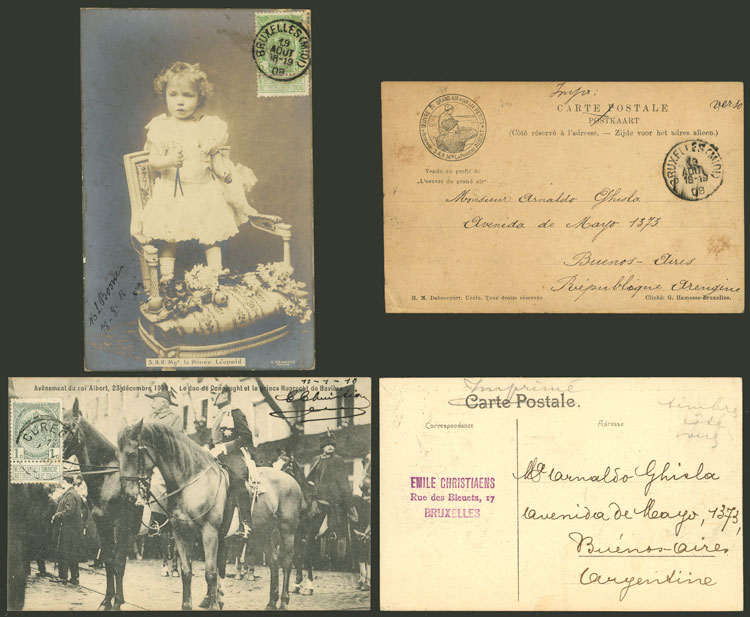 BRUXELLES (MIDI)
19
AOUT
18-19
08
18-8-
S.A.R. Mgr. le Prince Léopold
Impr:
CARTE POSTALE
POSTKAART
verso
(Côté réservé à l'adresse. — Zijde voor het adres alleen.)
Vendu au profit de
„L'oeuvre du grand air"
BRUXELLES (MIDI)
AOUT
18-19
08
Monsieur Arnaldo Ghisla
Avenida de Mayo 1373
Buenos-Aires
République Arengine
H. M. Debescourt, Uccle. Tous droits réservés
Cliché: G. Hamesse-Bruxelles.
Avènement du roi Albert, 23 décembre 1909
Le duc de Connaught et le prince Ruprecht de Bavière
11-1-10
1c 1c
Imprimé
Carte Postale.
Correspondance
Adresse
timbre
côté
EMILE CHRISTIAENS
Rue des Bleuets, 17
BRUXELLES
Mr Arnaldo Ghisla
Avenida de Mayo, 1373,
Buénos-aires
Argentine